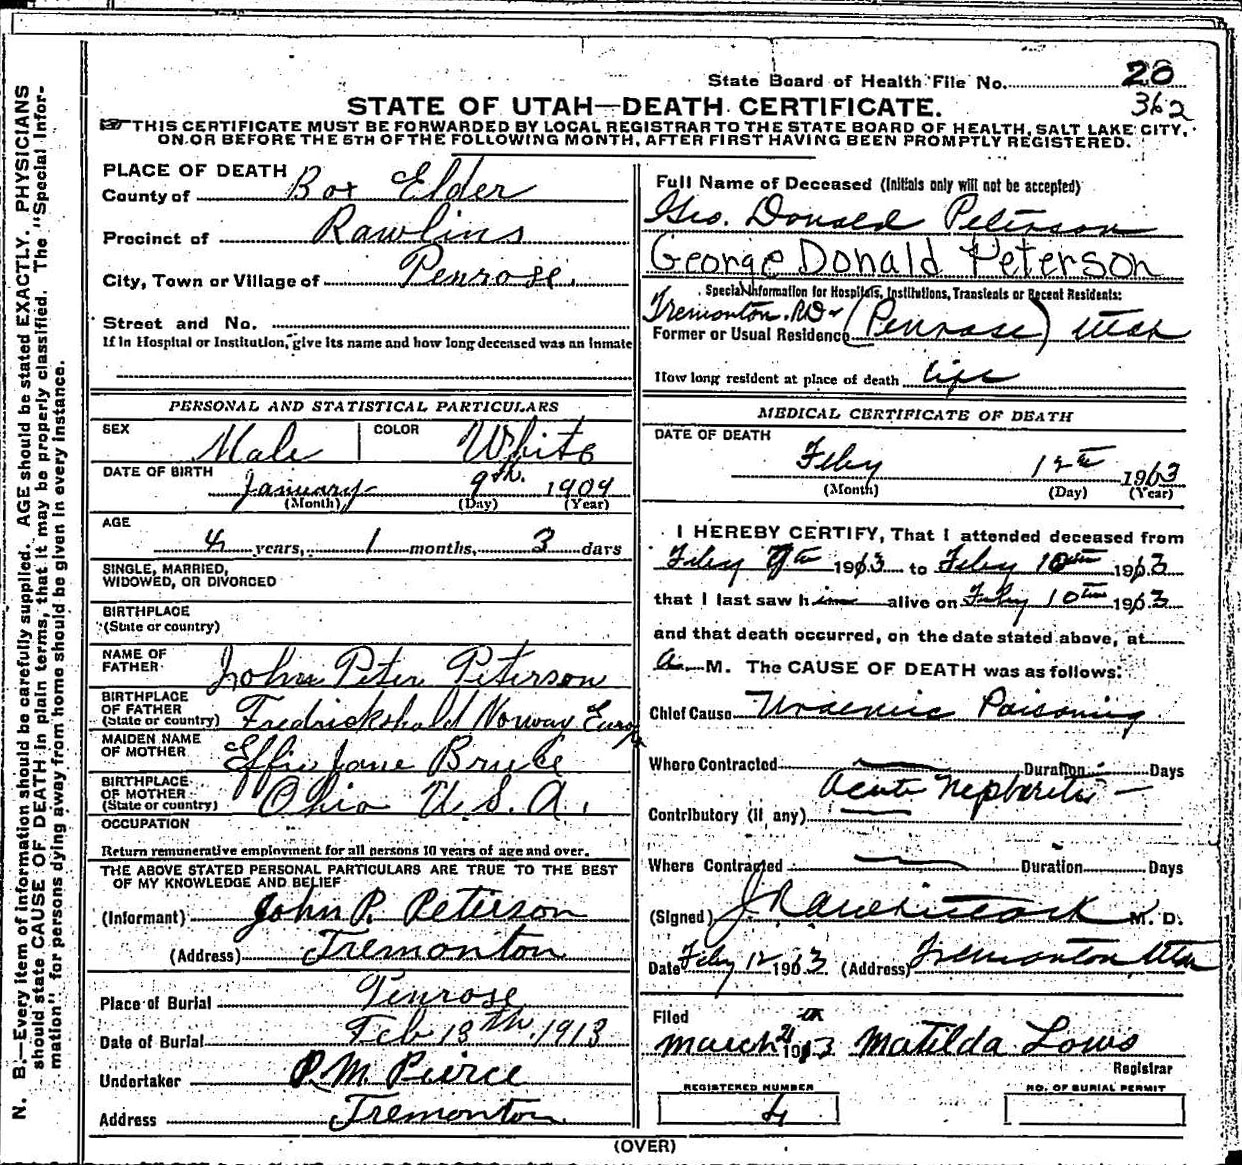 State Board of Health File No. 20
362
STATE OF UTAH—DEATH CERTIFICATE.
THIS CERTIFICATE MUST BE FORWARDED BY LOCAL REGISTRAR TO THE STATE BOARD OF HEALTH, SALT LAKE CITY,
ON OR BEFORE THE 5TH OF THE FOLLOWING MONTH, AFTER FIRST HAVING BEEN PROMPTLY REGISTERED.
N. B.—Every item of information should be carefully supplied. AGE should be stated EXACTLY. PHYSICIANS
should state CAUSE OF DEATH in plain terms, that it may be properly classified. The "Special Infor-
mation" for persons dying away from home should be given in every instance.
PLACE OF DEATH
County of Box Elder
Precinct of Rawlins
City, Town or Village of Penrose.
Street and No.
If in Hospital or Institution, give its name and how long deceased was an inmate
PERSONAL AND STATISTICAL PARTICULARS
SEX Male COLOR White
DATE OF BIRTH
January 9th. 1909
(Month) (Day) (Year)
AGE
4 years, 1 months, 3 days
SINGLE, MARRIED,
WIDOWED, OR DIVORCED
BIRTHPLACE
(State or country)
NAME OF
FATHER John Peter Peterson
BIRTHPLACE
OF FATHER
(State or country) Fredrickshald Norway Europe
MAIDEN NAME
OF MOTHER Effie Jane Bruce
BIRTHPLACE
OF MOTHER
(State or country) Ohio U.S.A.
OCCUPATION
Return remunerative employment for all persons 10 years of age and over.
THE ABOVE STATED PERSONAL PARTICULARS ARE TRUE TO THE BEST
OF MY KNOWLEDGE AND BELIEF
(Informant) John P. Peterson
(Address) Tremonton
Place of Burial Penrose
Date of Burial Feb 13th. 1913
Undertaker P. M. Pierce
Address Tremonton
Full Name of Deceased (Initials only will not be accepted)
Geo. Donald Peterson
George Donald Peterson
Special Information for Hospitals, Institutions, Transients or Recent Residents:
Tremonton. RD
Former or Usual Residence (Penrose) Utah
How long resident at place of death life
MEDICAL CERTIFICATE OF DEATH
DATE OF DEATH
Feby 12th 1913
(Month) (Day) (Year)
I HEREBY CERTIFY, That I attended deceased from
Feby 9th 1913 to Feby 10th 1913
that I last saw him alive on Feby 10th 1913
and that death occurred, on the date stated above, at
a M. The CAUSE OF DEATH was as follows:
Chief Cause Uraemic Poisoning
Where Contracted Duration Days
Acute Nephritis
Contributory (if any)
Where Contracted Duration Days
(Signed) M. D.
Date Feby 12 1913 (Address) Tremonton Utah
Filed
March 1913 Matilda Lows
Registrar
REGISTERED NUMBER
4
NO. OF BURIAL PERMIT
(OVER)